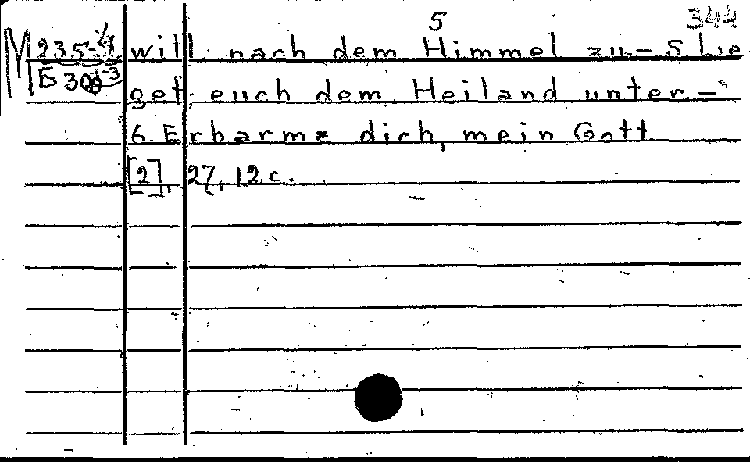 5 344
M 235-4 will nach dem Himmel zu- 5 Lie
E 300-3 get euch dem Heiland unter-
6 Erbarme dich, mein Gott
[2], 27, 12 c.